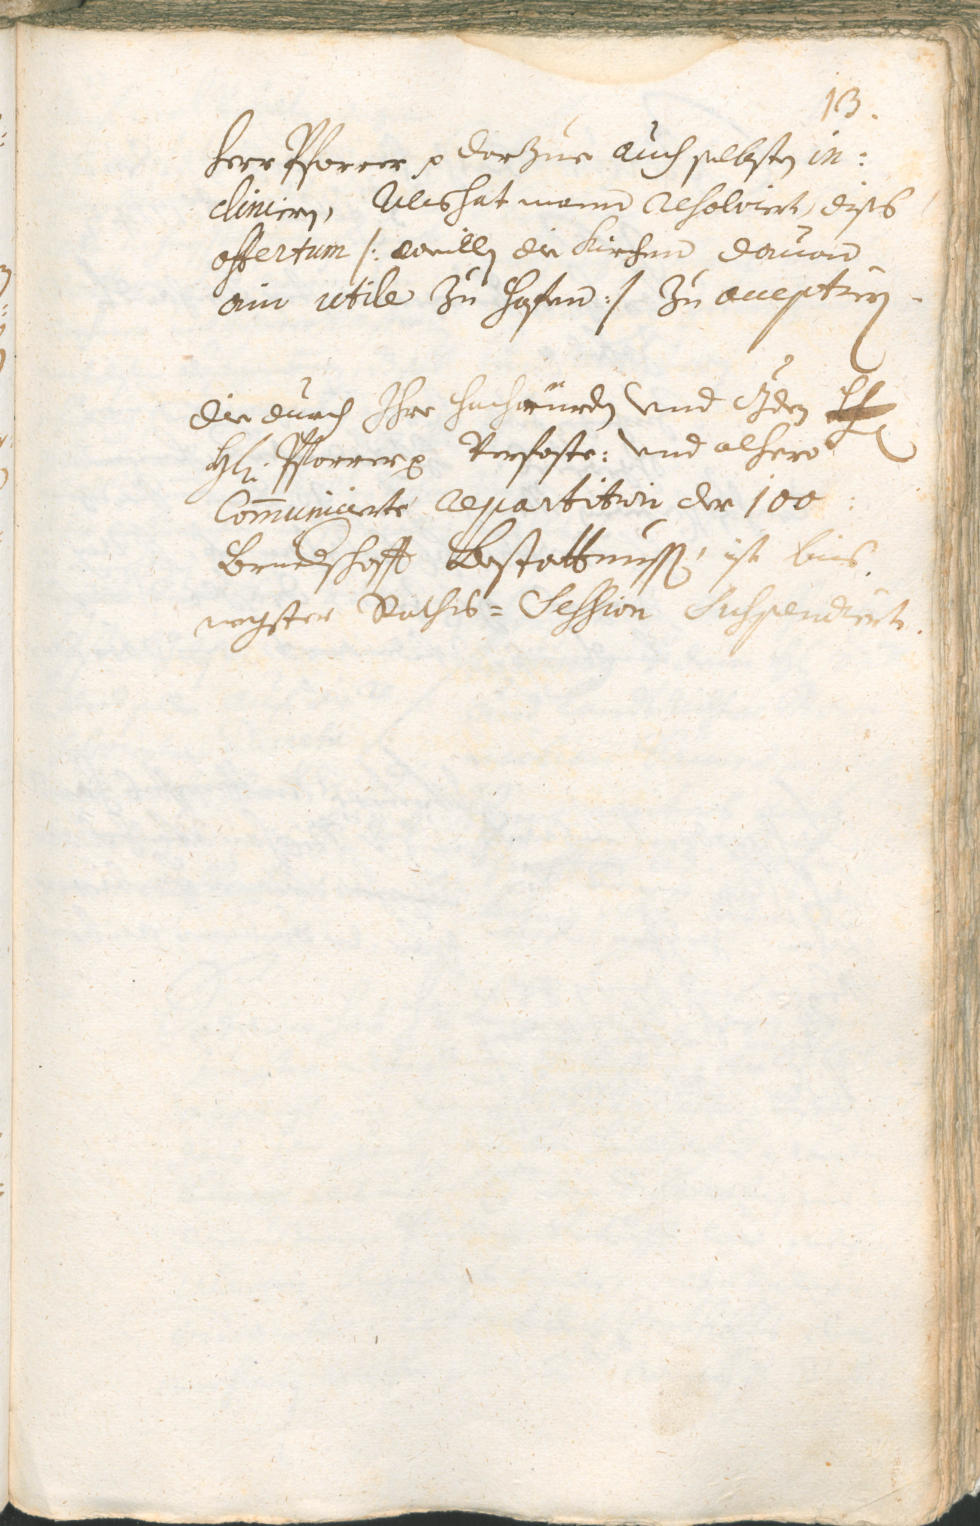 13.
Herr Pfarrer p darzue auch selbsten in:
cliniern, Alß hat mann resolviert, diß
offertum /: weillen die Kirchen dauon
ain utile zu hofen :/ zu acceptiern.
die durch Ihre Hochwürden vnd Gden
H: Pfarrer p Verfaste: vnd alhero
Communicierte repartition der 100
Bestattnuss, ist bis
negster Raths = Session Suspendiert.